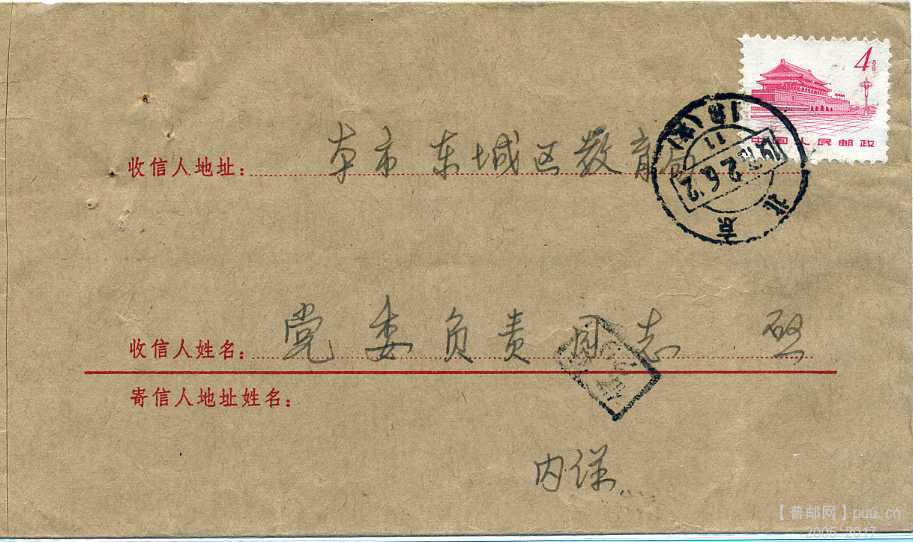 4分
中国人民邮政
北京
收信人地址：本市东城区教育局
收信人姓名：党委负责同志 啓
寄信人地址姓名：
内详
【普邮网】puu.cn
2005-2017